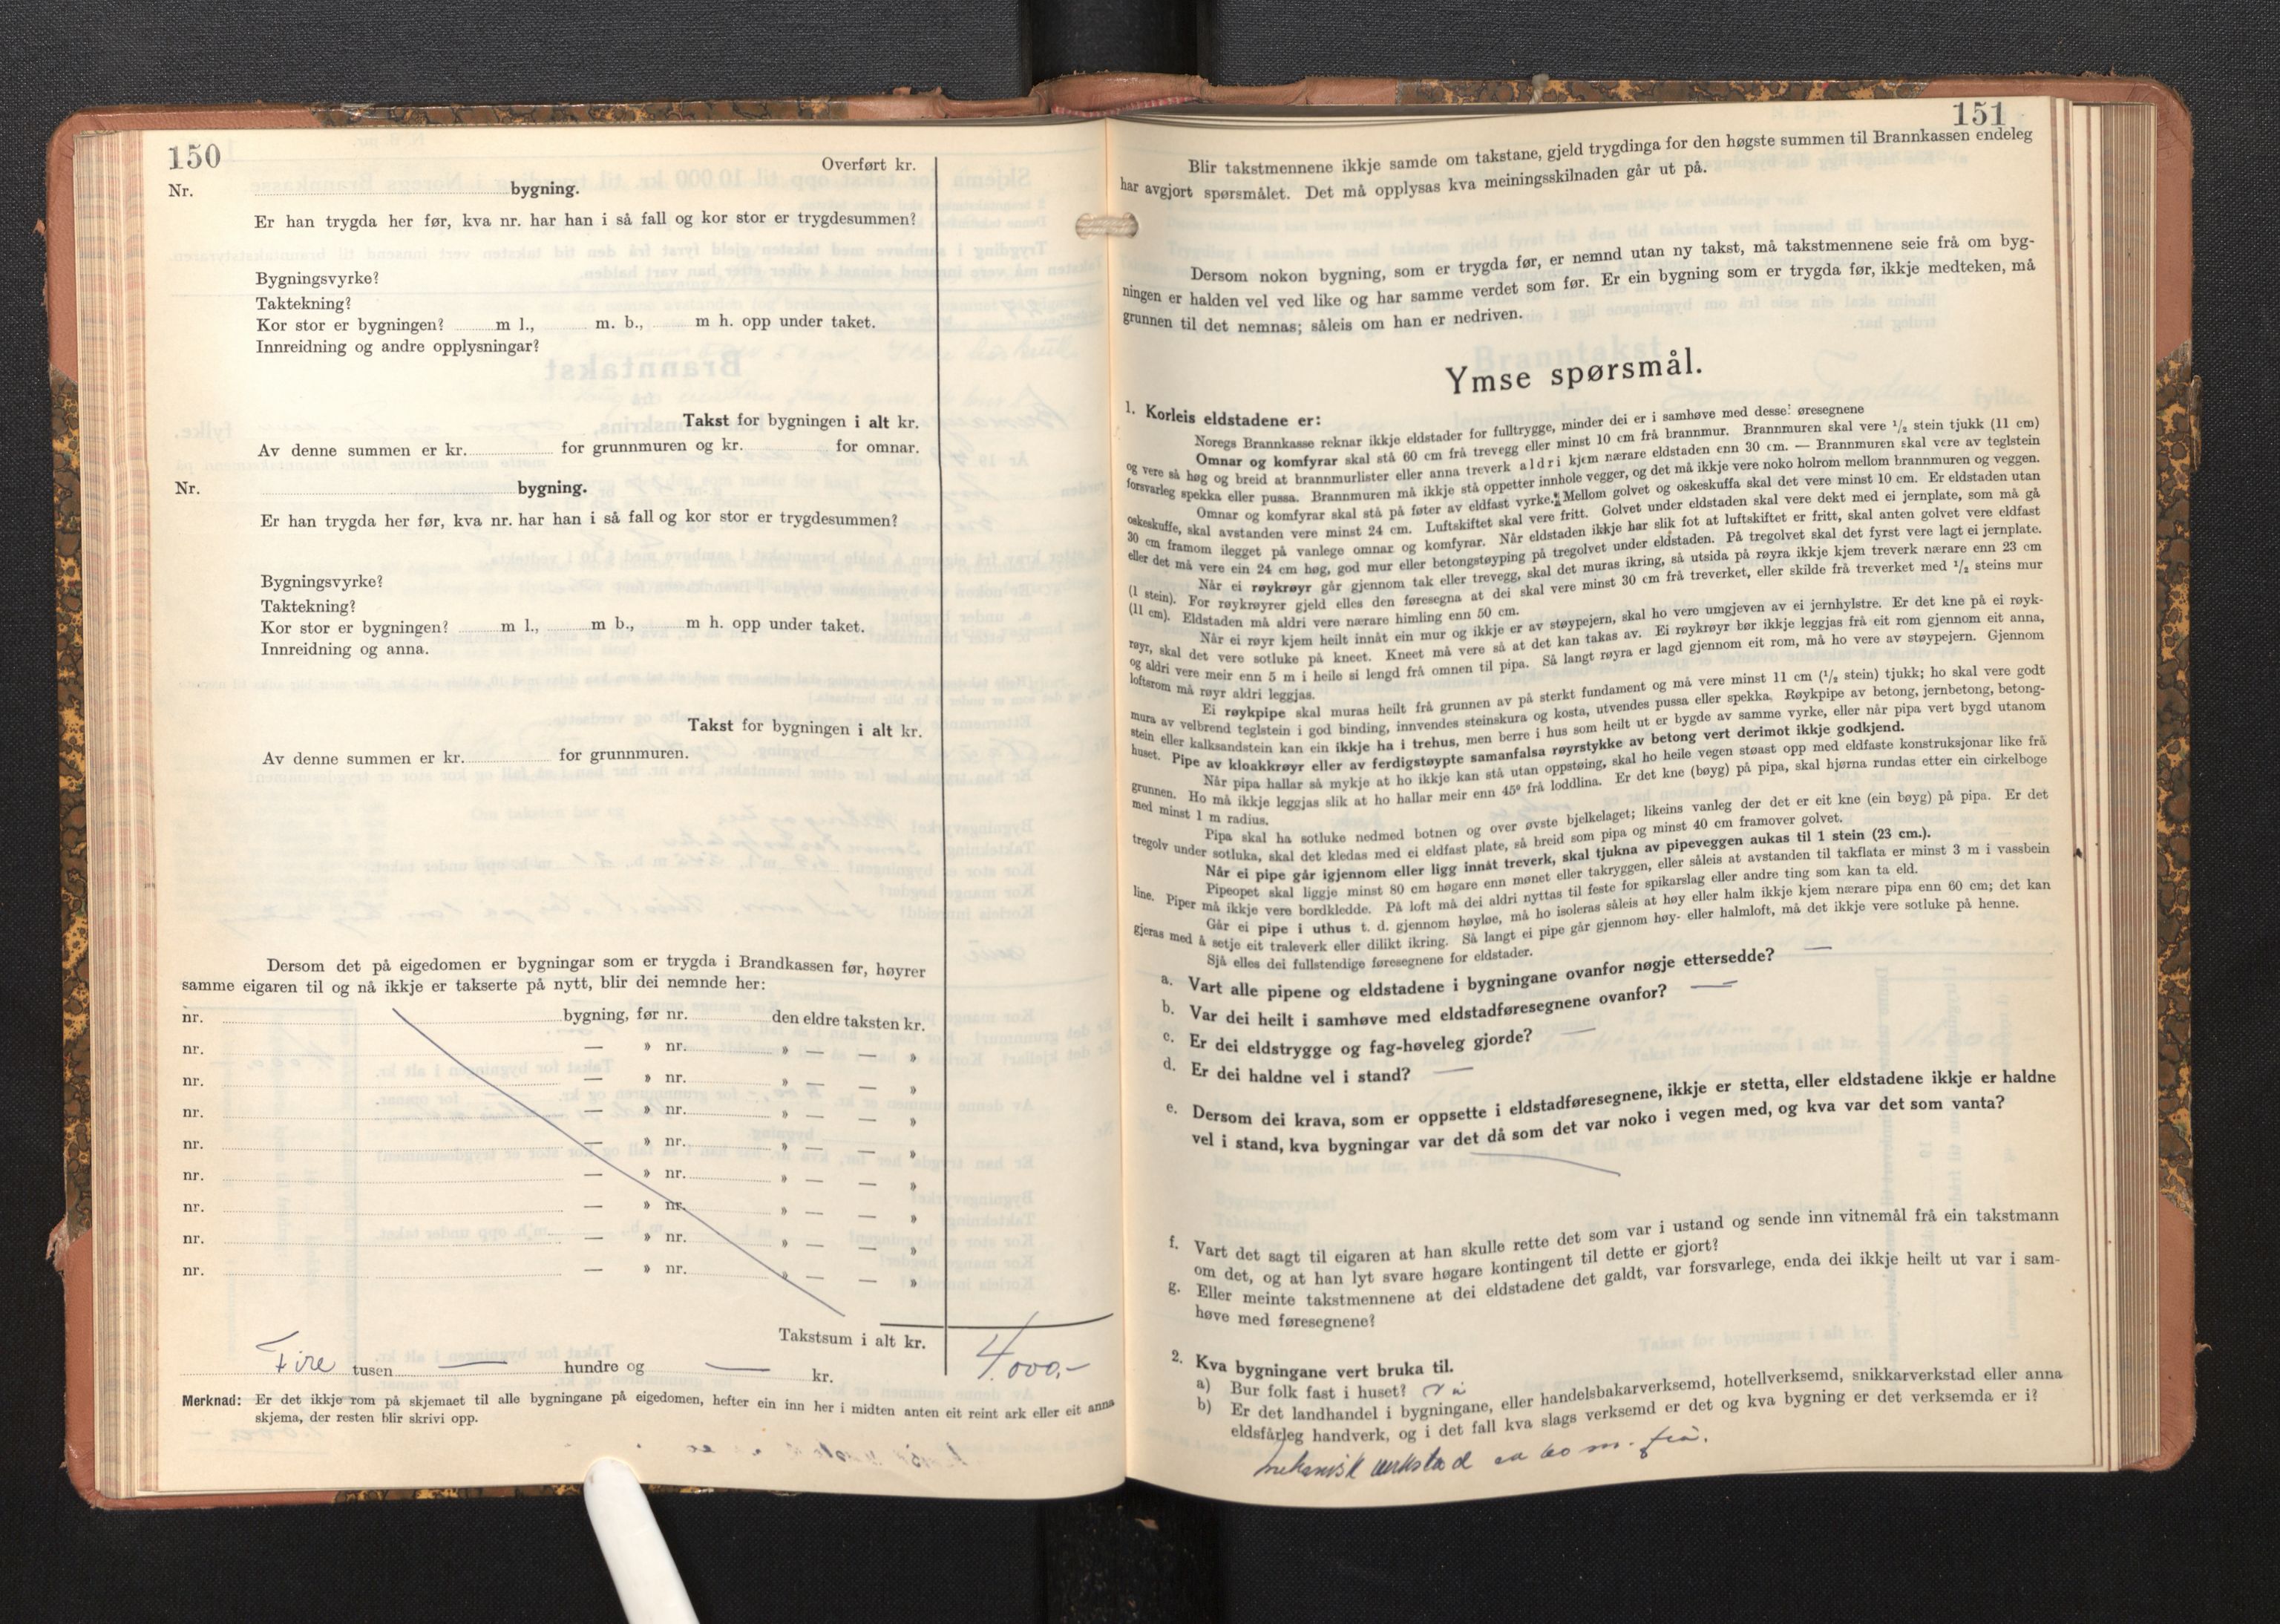 150
Overført kr.
Nr. bygning.
Er han trygda her før, kva nr. har han i så fall og kor stor er trygdesummen?
Bygningsvyrke?
Taktekning?
Kor stor er bygningen? m l., m. b., m h. opp under taket.
Innreidning og andre opplysningar?
Takst for bygningen i alt kr.
Av denne summen er kr. for grunnmuren og kr. for omnar.
Nr. bygning.
Er han trygda her før, kva nr. har han i så fall og kor stor er trygdesummen?
Bygningsvyrke?
Taktekning?
Kor stor er bygningen? m l., m b., m h. opp under taket.
Innreidning og anna.
Takst for bygningen i alt kr.
Av denne summen er kr. for grunnmuren.
Dersom det på eigedomen er bygningar som er trygda i Brandkassen før, høyrer
samme eigaren til og nå ikkje er takserte på nytt, blir dei nemnde her:
nr. bygning, før nr. den eldre taksten kr.
nr. — » nr. » — — »
nr. — » nr. » — — »
nr. — » nr. » — — »
nr. — » nr. » — — »
nr. — » nr. » — — »
nr. — » nr. » — — »
nr. — » nr. » — — »
nr. — » nr. » — — »
Takstsum i alt kr. 4.000,-
Fire tusen — hundre og — kr.
Merknad: Er det ikkje rom på skjemaet til alle bygningane på eigedomen, hefter ein inn her i midten anten eit reint ark eller eit anna
skjema, der resten blir skrivi opp.
151
Blir takstmennene ikkje samde om takstane, gjeld trygdinga for den høgste summen til Brannkassen endeleg
har avgjort spørsmålet. Det må opplysas kva meiningsskilnaden går ut på.
Dersom nokon bygning, som er trygda før, er nemnd utan ny takst, må takstmennene seie frå om byg-
ningen er halden vel ved like og har samme verdet som før. Er ein bygning som er trygda før, ikkje medteken, må
grunnen til det nemnas; såleis om han er nedriven.
Ymse spørsmål.
1. Korleis eldstadene er:
Noregs Brannkasse reknar ikkje eldstader for fulltrygge, minder dei er i samhøve med desse: øresegnene
Omnar og komfyrar skal stå 60 cm frå trevegg eller minst 10 cm frå brannmur. Brannmuren skal vere 1/2 stein tjukk (11 cm)
og vere så høg og breid at brannmurlister eller anna treverk aldri kjem nærare eldstaden enn 30 cm. — Brannmuren skal vere av teglstein
forsvarleg spekka eller pussa. Brannmuren må ikkje stå oppetter innhole vegger, og det må ikkje vere noko holrom mellom brannmuren og veggen.
Omnar og komfyrar skal stå på føter av eldfast vyrke. Mellom golvet og oskeskuffa skal det vere minst 10 cm. Er eldstaden utan
oskeskuffe, skal avstanden vere minst 24 cm. Luftskiftet skal vere fritt. Golvet under eldstaden skal vere dekt med ei jernplate, som må gå
30 cm framom ilegget på vanlege omnar og komfyrar. Når eldstaden ikkje har slik fot at luftskiftet er fritt, skal anten golvet vere eldfast
eller det må vere ein 24 cm høg, god mur eller betongstøyping på tregolvet under eldstaden. På tregolvet skal det fyrst vere lagt ei jernplate.
Når ei røykrøyr går gjennom tak eller trevegg, skal det muras ikring, så utsida på røyra ikkje kjem treverk nærare enn 23 cm
(1 stein). For røykrøyrer gjeld elles den føresegna at dei skal vere minst 30 cm frå treverket, eller skilde frå treverket med 1/2 steins mur
(11 cm). Eldstaden må aldri vere nærare himling enn 50 cm.
Når ei røyr kjem heilt innåt ein mur og ikkje er av støypejern, skal ho vere umgjeven av ei jernhylstre. Er det kne på ei røyk-
røyr, skal det vere sotluke på kneet. Kneet må vere så at det kan takas av. Ei røykrøyr bør ikkje leggjas frå eit rom gjennom eit anna,
og aldri vere meir enn 5 m i heile si lengd frå omnen til pipa. Så langt røyra er lagd gjennom eit rom, må ho vere av støypejern. Gjennom
loftsrom må røyr aldri leggjas.
Ei røykpipe skal muras heilt frå grunnen av på sterkt fundament og må vere minst 11 cm (1/2 stein) tjukk; ho skal vere godt
mura av velbrend teglstein i god binding, innvendes steinskura og kosta, utvendes pussa eller spekka. Røykpipe av betong, jernbetong, betong-
stein eller kalksandstein kan ein ikkje ha i trehus, men berre i hus som heilt ut er bygde av samme vyrke, eller når pipa vert bygd utanom
huset. Pipe av kloakkrøyr eller av ferdigstøypte samanfalsa røyrstykke av betong vert derimot ikkje godkjend.
Når pipa hallar så mykje at ho ikkje kan stå utan oppstøing, skal ho heile vegen støast opp med eldfaste konstruksjonar like frå
grunnen. Ho må ikkje leggjas slik at ho hallar meir enn 45° frå loddlina. Er det kne (bøyg) på pipa, skal hjørna rundas etter ein cirkelboge
med minst 1 m radius.
Pipa skal ha sotluke nedmed botnen og over øvste bjelkelaget; likeins vanleg der det er eit kne (ein bøyg) på pipa. Er det
tregolv under sotluka, skal det kledas med ei eldfast plate, så breid som pipa og minst 40 cm framover golvet.
Når ei pipe går igjennom eller ligg innåt treverk, skal tjukna av pipeveggen aukas til 1 stein (23 cm.).
Pipeopet skal liggje minst 80 cm høgare enn mønet eller takryggen, eller såleis at avstanden til takflata er minst 3 m i vassbein
line. Piper må ikkje vere bordkledde. På loft må dei aldri nyttas til feste for spikarslag eller andre ting som kan ta eld.
Går ei pipe i uthus t. d. gjennom høyløe, må ho isoleras såleis at høy eller halm ikkje kjem nærare pipa enn 60 cm; det kan
gjeras med å setje eit traleverk eller dilikt ikring. Så langt ei pipe går gjennom høy- eller halmloft, må det ikkje vere sotluke på henne.
Sjå elles dei fullstendige føresegnene for eldstader.
a. Vart alle pipene og eldstadene i bygningane ovanfor nøgje ettersedde? —
b. Var dei heilt i samhøve med eldstadføresegnene ovanfor? —
c. Er dei eldstrygge og fag-høveleg gjorde? —
d. Er dei haldne vel i stand? —
e. Dersom dei krava, som er oppsette i eldstadføresegnene, ikkje er stetta, eller eldstadene ikkje er haldne
vel i stand, kva bygningar var det då som det var noko i vegen med, og kva var det som vanta?
f. Vart det sagt til eigaren at han skulle rette det som var i ustand og sende inn vitnemål frå ein takstmann
om det, og at han lyt svare høgare kontingent til dette er gjort?
g. Eller meinte takstmennene at dei eldstadene det galdt, var forsvarlege, enda dei ikkje heilt ut var i sam-
høve med føresegnene?
2. Kva bygningane vert bruka til.
a) Bur folk fast i huset?
b) Er det landhandel i bygningane, eller handelsbakarverksemd, hotellverksemd, snikkarverkstad eller anna
eldsfårleg handverk, og i det fall kva slags verksemd er det og kva bygning er det verksemda er i?
mekanisk verkstad ca 60 m. frå.